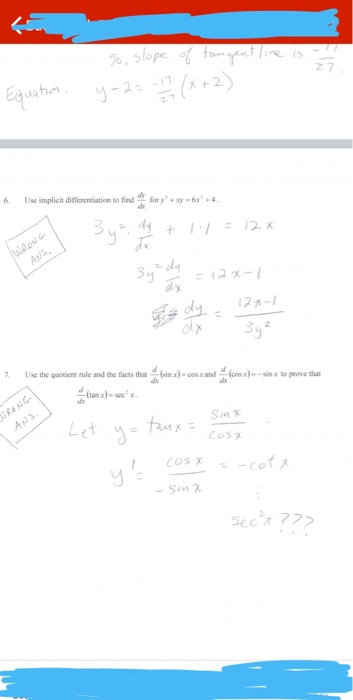 So, slope of tangent line is -17/27.
Equation. y-2 = -17/27 (x+2)
6. Use implicit differentiation to find dy/dx for y³ + xy = 6x² + 4.
WRONG ANS.
3y². dy/dx + 1·1 = 12x
3y² dy/dx = 12x-1
dy/dx = 12x-1/3y²
7. Use the quotient rule and the facts that d/dx (sin x) = cos x and d/dx (cos x) = -sin x to prove that
d/dx (tan x) = sec² x.
WRONG ANS.
Let y = tan x = sin x/cos x
y' = cos x/-sin x = -cot x
⋮
sec²x ???